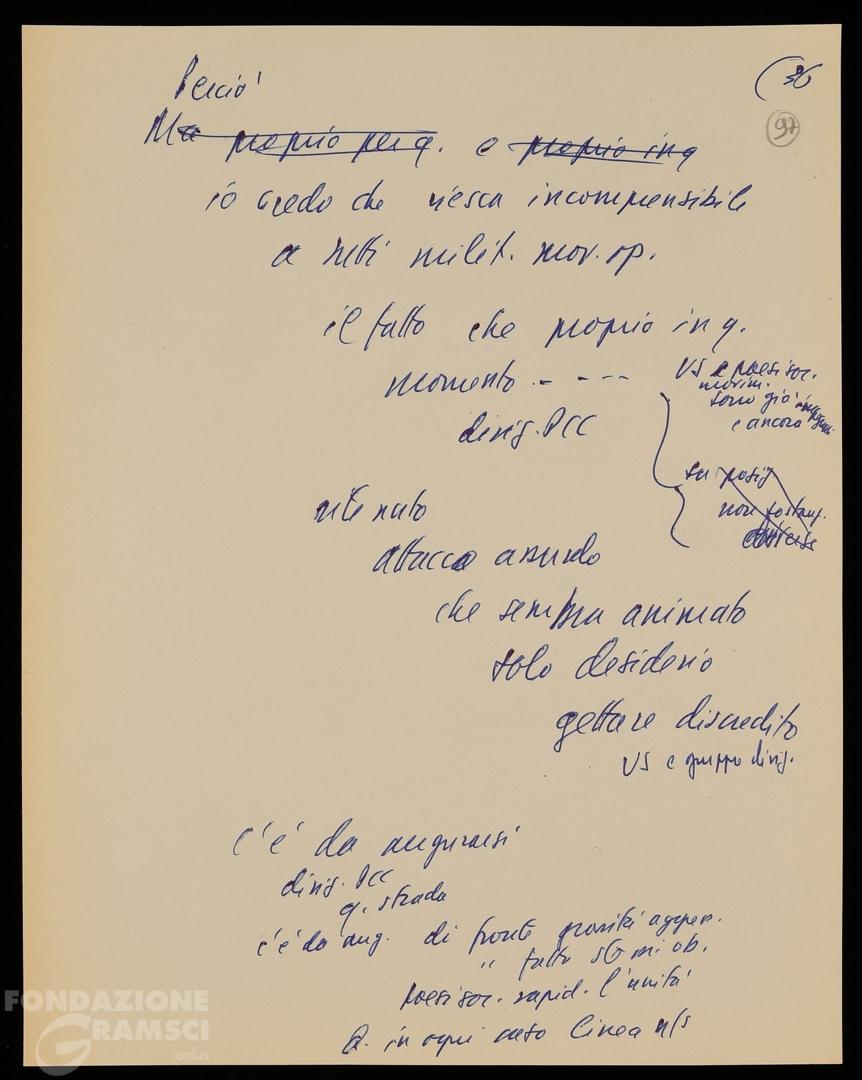 Perciò
(36
97
Ma proprio per q. e proprio in q
io credo che riesca incomprensibile
a tutti milit. mov. op.
il fatto che proprio in q.
momento - - - -
dirig. PCC
US e paesi soc.
sono già
e ancora
su posiz
non sostanz.
attacco assurdo
che sembra animato
solo desiderio
gettare discredito
US e gruppo dirig.
c'è da augurarsi
dirig. PCC
q. strada
c'è da aug. di fronte gravità aggres.
" fatto
paesi soc. rapid. l'unità
Q. in ogni caso linea n/s
FONDAZIONE
GRAMSCI
onlus